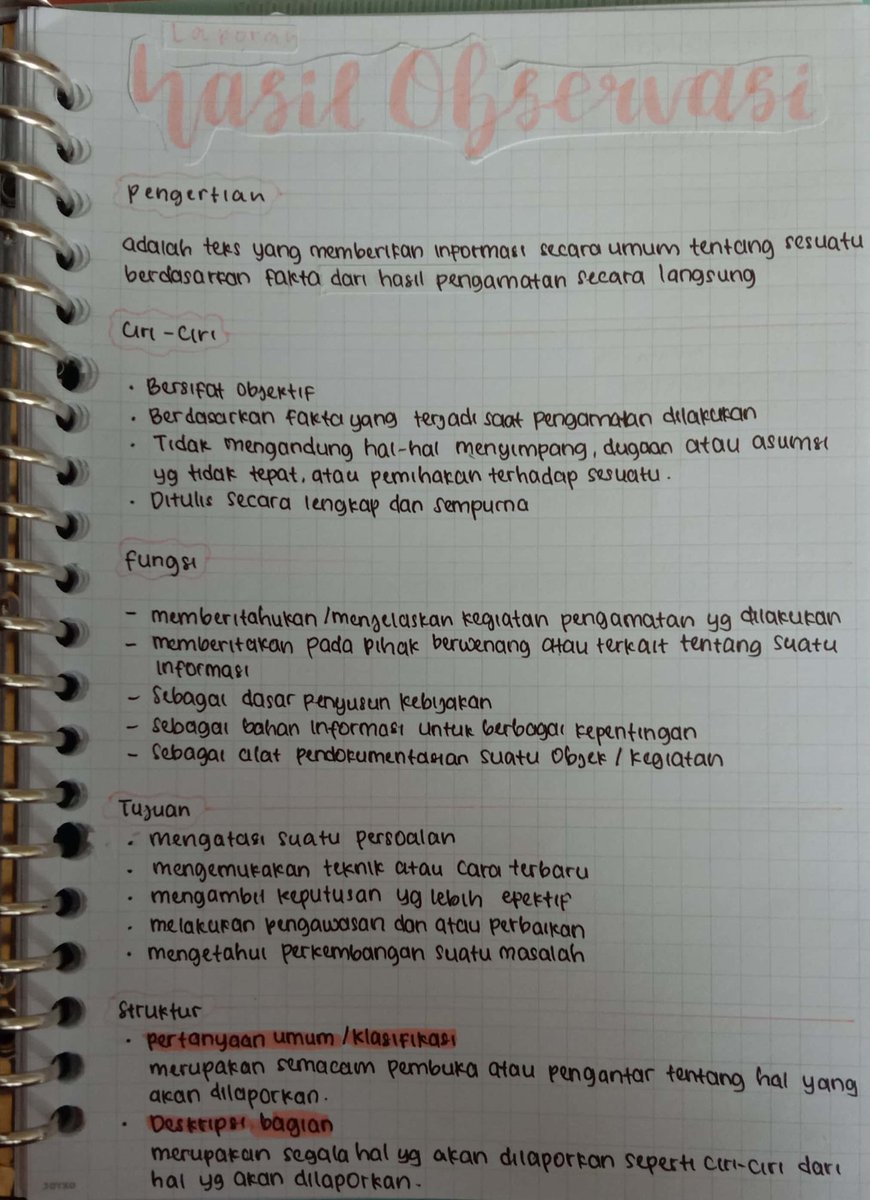 Laporan
hasil Observasi
pengertian
adalah teks yang memberikan informasi secara umum tentang sesuatu
berdasarkan fakta dari hasil pengamatan secara langsung
ciri-ciri
• Bersifat objektif
• Berdasarkan fakta yang terjadi saat pengamatan dilakukan
• Tidak mengandung hal-hal menyimpang, dugaan atau asumsi
yg tidak tepat, atau pemihakan terhadap sesuatu.
• Ditulis secara lengkap dan sempurna
fungsi
- memberitahukan/menjelaskan kegiatan pengamatan yg dilakukan
- memberitakan pada pihak berwenang atau terkait tentang suatu
informasi
- sebagai dasar penyusun kebijakan
- sebagai bahan informasi untuk berbagai kepentingan
- sebagai alat pendokumentasian suatu objek / kegiatan
Tujuan
• mengatasi suatu persoalan
• mengemukakan teknik atau cara terbaru
• mengambil keputusan yg lebih efektif
• melakukan pengawasan dan atau perbaikan
• mengetahui perkembangan suatu masalah
Struktur
• pertanyaan umum/klasifikasi
merupakan semacam pembuka atau pengantar tentang hal yang
akan dilaporkan.
• Deskripsi bagian
merupakan segala hal yg akan dilaporkan seperti ciri-ciri dari
hal yg akan dilaporkan.
JOYKO